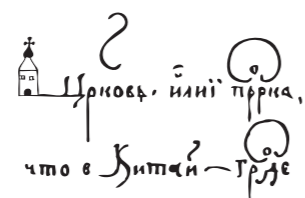 Црковь. йлиї прⷪрка,
что в Китай – Грⷪде